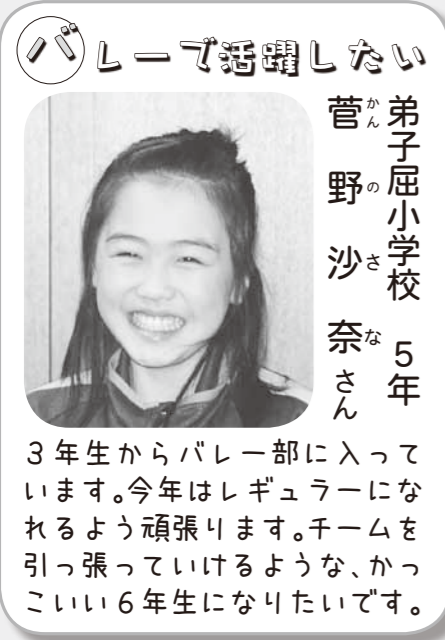 バレーで活躍したい
弟子屈小学校 5年
菅野沙奈さん
かんのさな
3年生からバレー部に入って
います。今年はレギュラーにな
れるよう頑張ります。チームを
引っ張っていけるような、かっ
こいい6年生になりたいです。